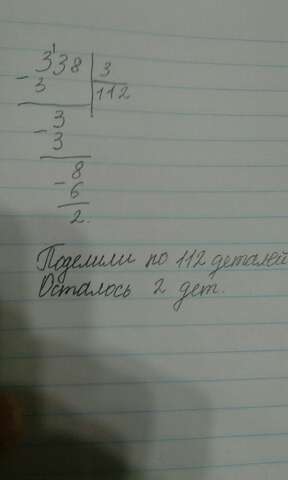 338 3
- 3 112
3
- 3
8
- 6
2.
Поделили по 112 деталей
Осталось 2 дет.